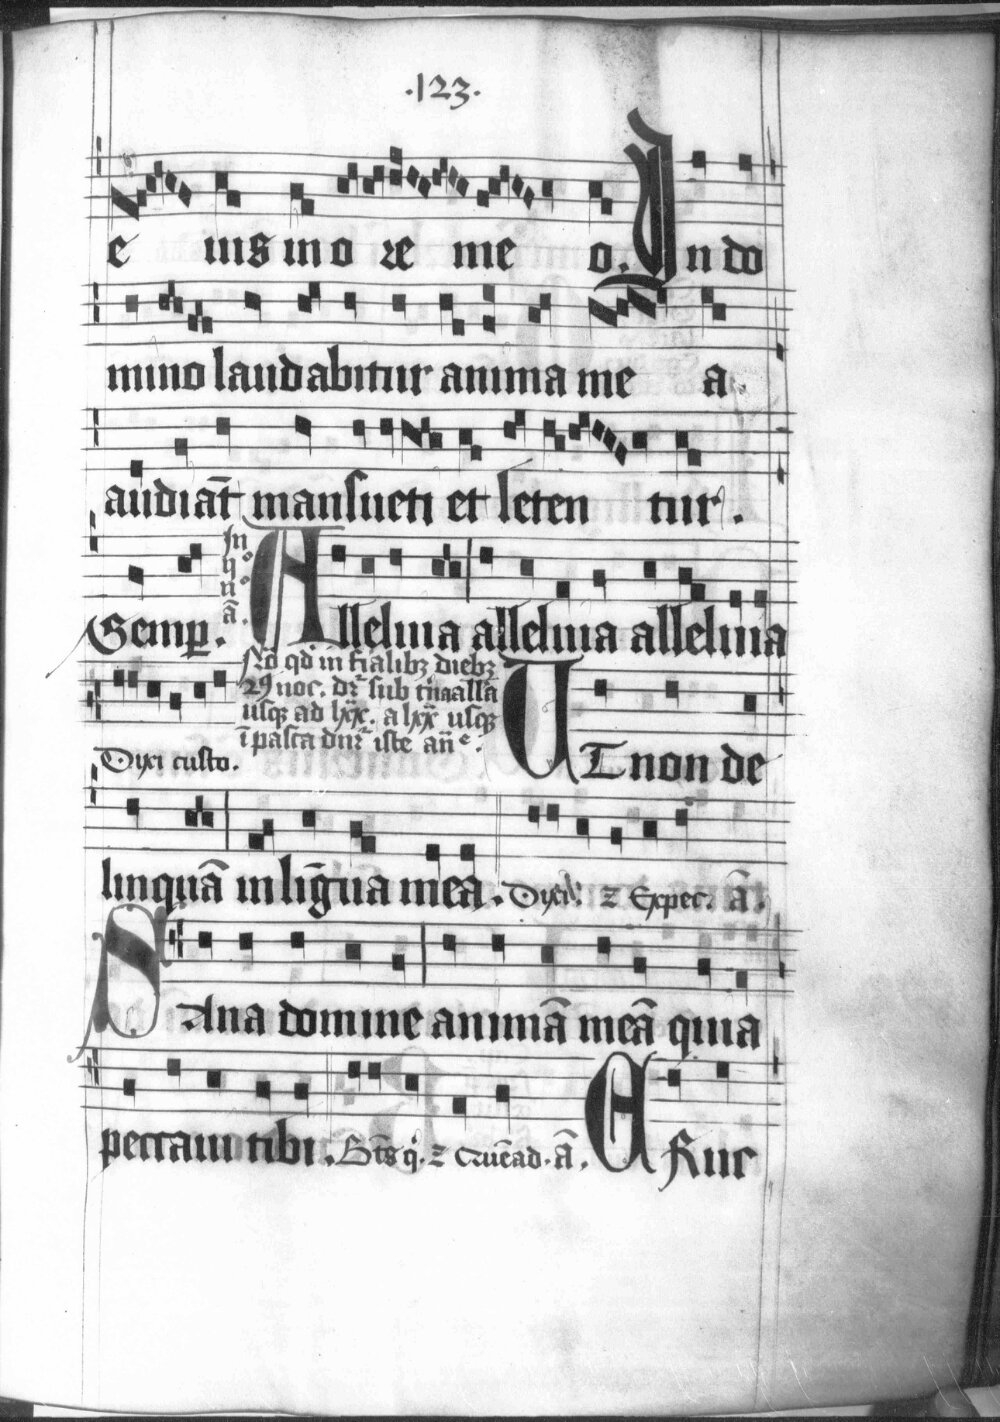 .123.
e ius in o re me o. In do
mino laudabitur anima me a.
audiāt mansueti et leten tur.
Semp. In
Alleluia alleluia alleluia
Nō qd in fialibz diebz
29 noc. dr sub
usqz ad lxx. a lxx usqz
ī pasca dnr iste añe.
UT non de
Dixi custo.
linquā in līgua mea. Dixi. z Expec. ā.
SAna domine animā meā quia
peccaui tibi. Btūs q. z ā. ERuc